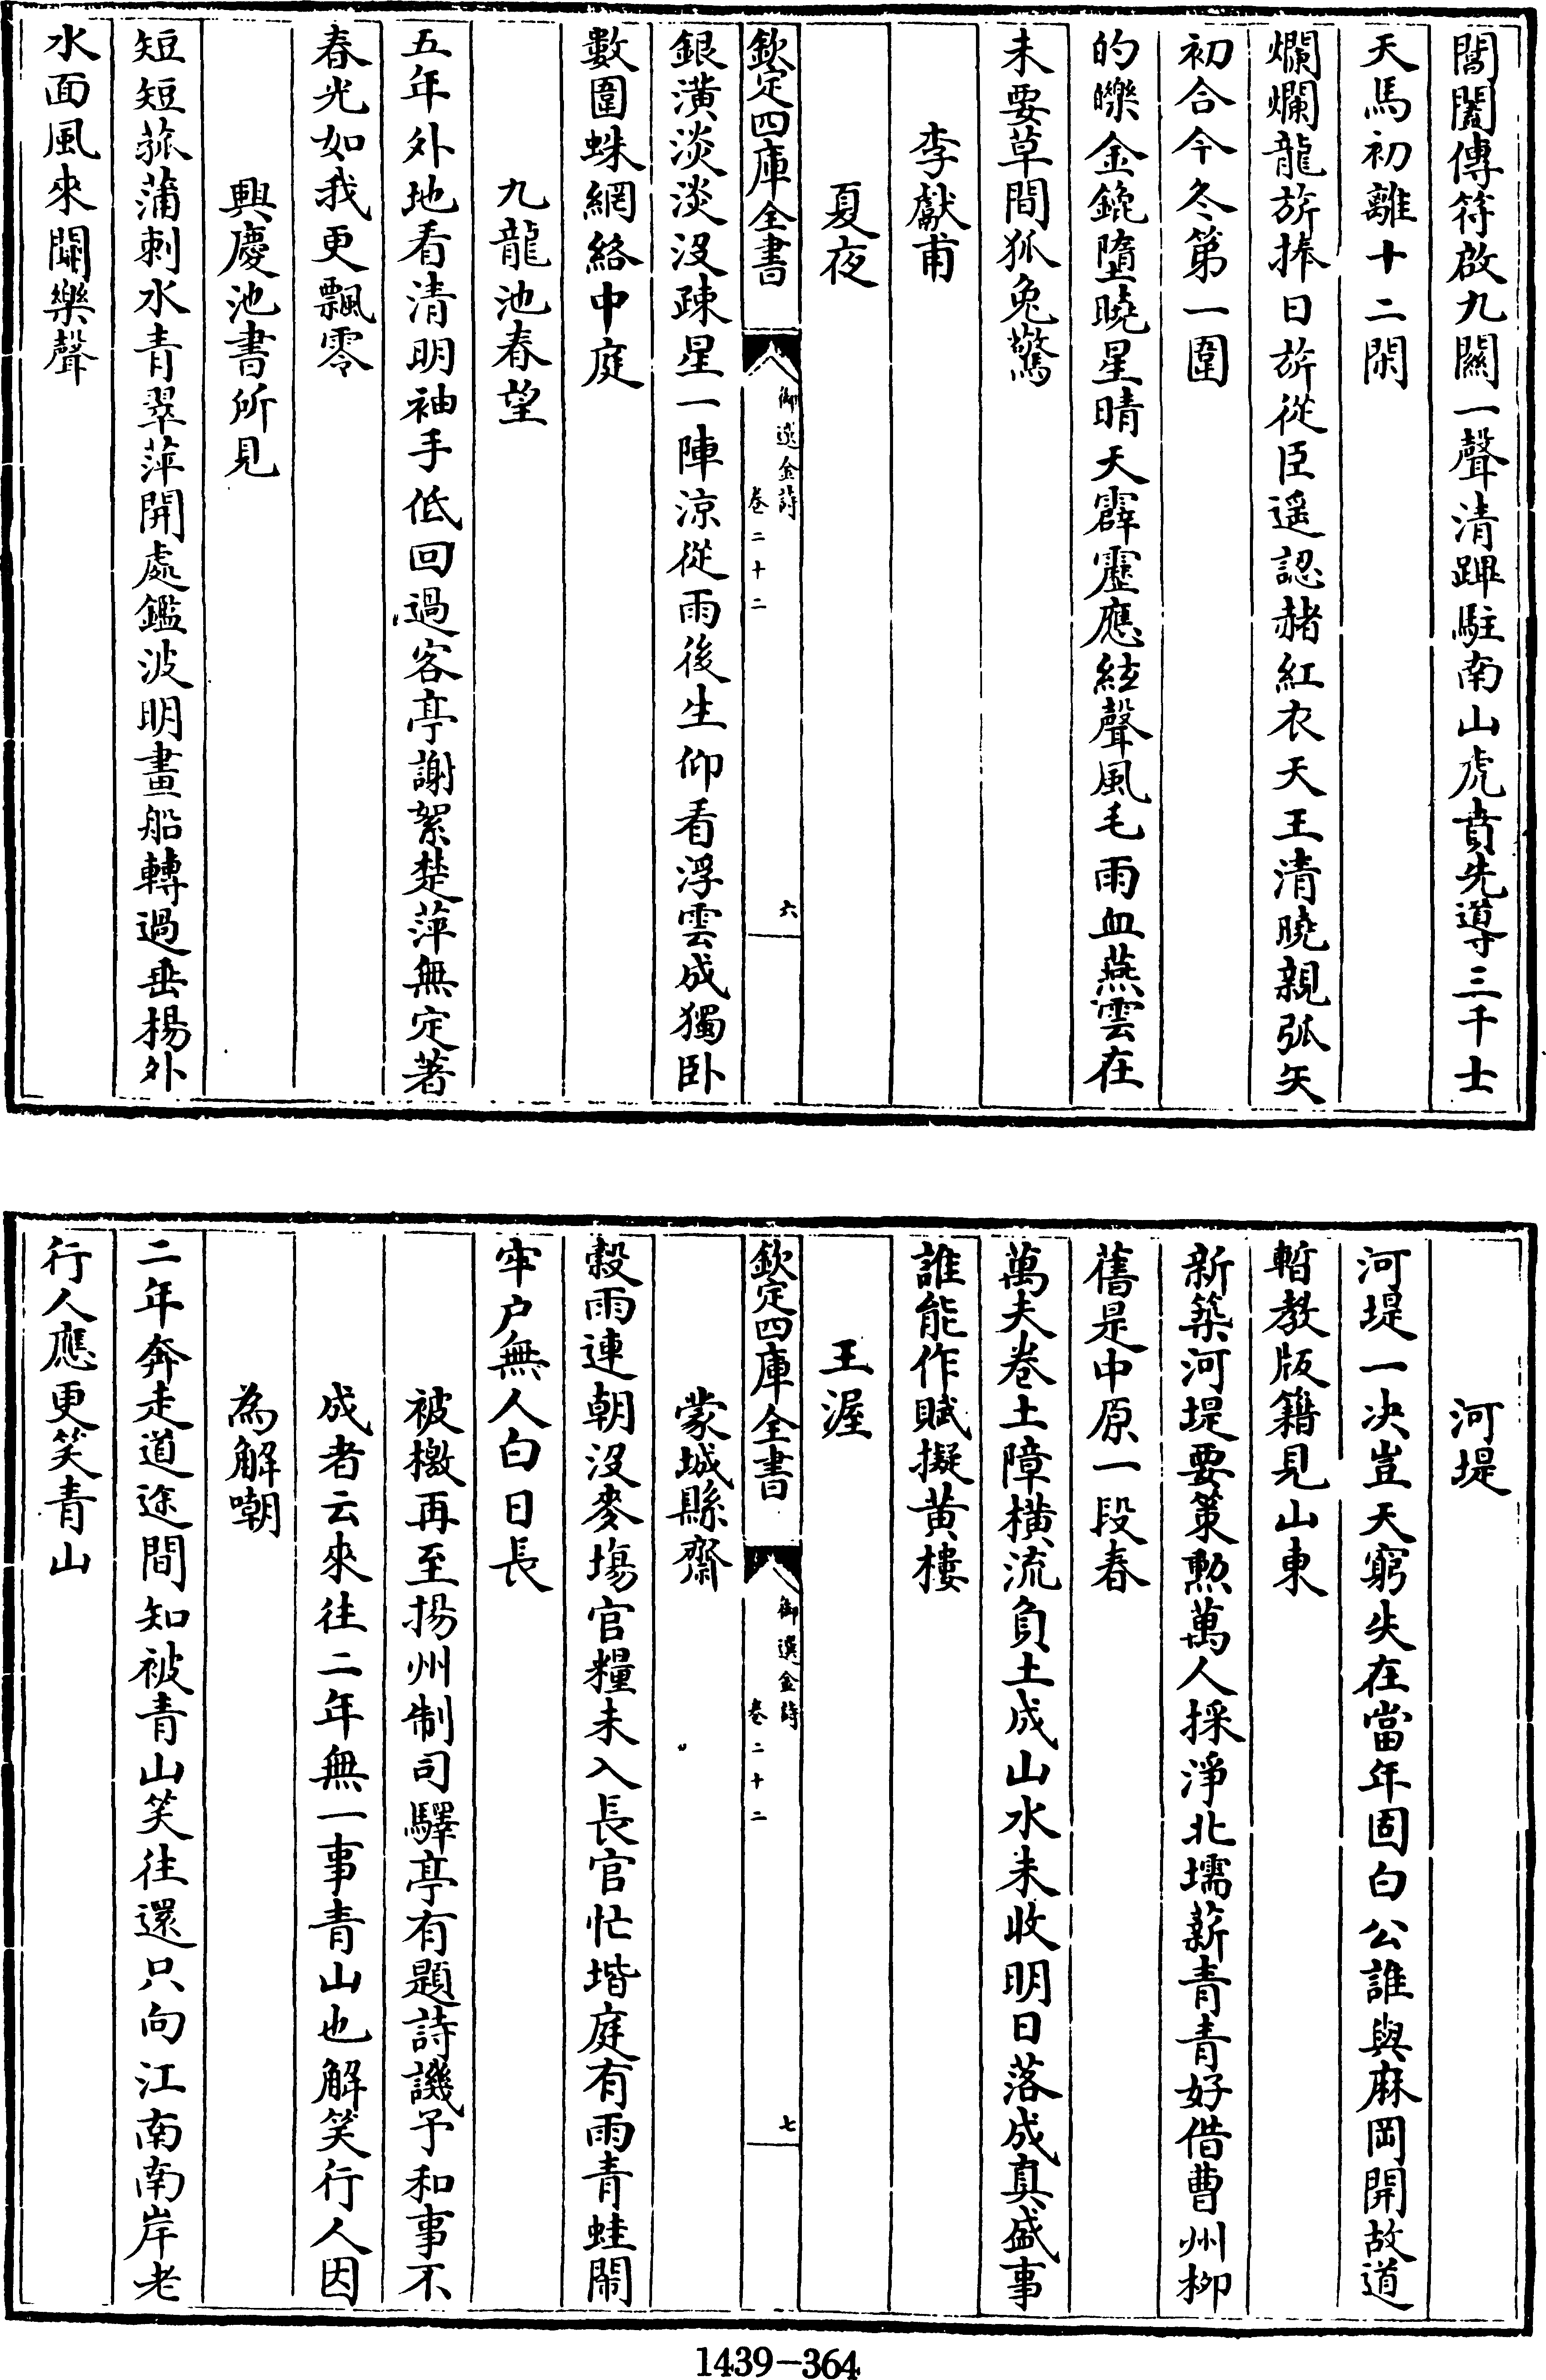 閶闔傳符啟九關一聲清蹕駐南山虎賁先導三千士
天馬初離十二閑
爛爛龍旂捧日旂從臣遥認赭紅衣天王清曉親弧矢
初合今冬第一圍
的皪金鎞墮曉星晴天霹靂應絃聲風毛雨血燕雲在
未要草間狐兔驚
李獻甫
夏夜
欽定四庫全書
御選金詩
卷二十二
六
銀潢淡淡没疎星一陣涼從雨後生仰看浮雲成獨卧
數圍蛛網絡中庭
九龍池春望
五年外地看清明袖手低回過客亭謝絮楚萍無定著
春光如我更飄零
興慶池書所見
短短菰蒲刺水青翠萍開處鑑波明畫船轉過垂楊外
水面風來聞樂聲
河堤
河堤一决豈天窮失在當年固白公誰與麻岡開故道
暫教版籍見山東
新築河堤要策勲萬人採淨北壖薪青青好借曹州柳
舊是中原一段春
萬夫卷土障横流負土成山水未收明日落成真盛事
誰能作賦擬黄樓
王渥
欽定四庫全書
御選金詩
卷二十二
七
蒙城縣齋
穀雨連朝没麥塲官糧未入長官忙堦庭有雨青蛙鬧
牢户無人白日長
被檄再至揚州制司驛亭有題詩譏予和事不
成者云來往二年無一事青山也解笑行人因
為解嘲
二年奔走道途間知被青山笑往還只向江南南岸老
行人應更笑青山
1439-364